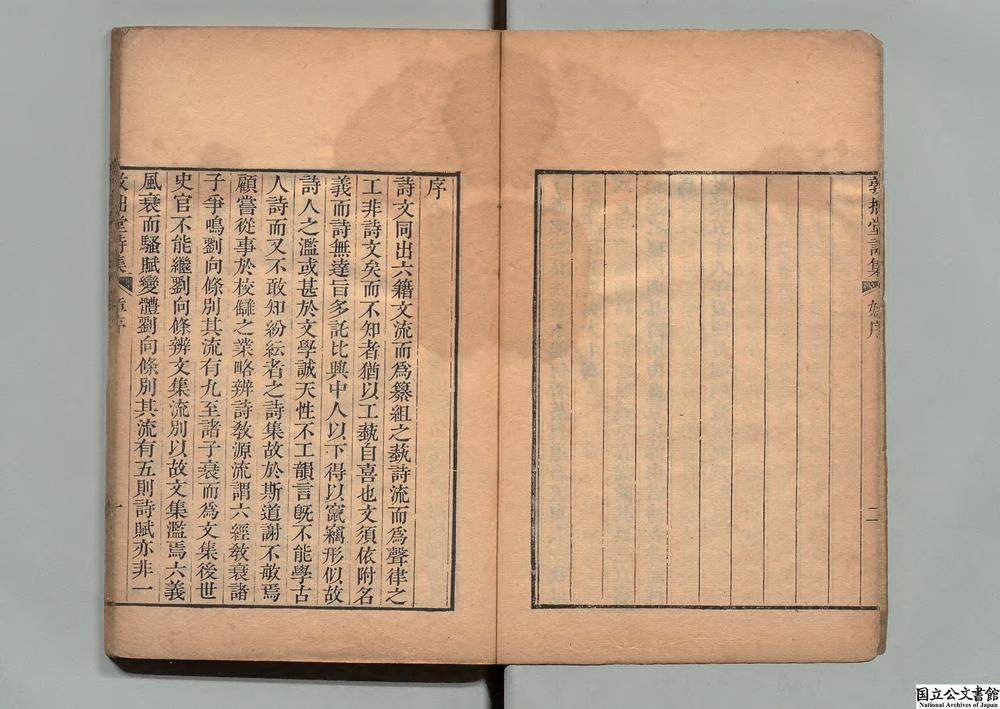 堂詩集
序
二
序
詩文同出六籍文流而爲纂組之蓺詩流而爲聲律之
工非詩文矣而不知者猶以工蓺自喜也文須依附名
義而詩無達旨多託比興中人以下得以竄竊形似故
詩人之濫或甚於文學誠天性不工韻言旣不能學古
人詩而又不敢知紛紜者之詩集故於斯道謝不敏焉
顧嘗從事於校讎之業略辨詩敎源流謂六經敎衰諸
子爭鳴劉向條別其流有九至諸子衰而爲文集後世
史官不能繼劉向條辨文集流別以故文集濫焉六義
風衰而騷賦變體劉向條別其流有五則詩賦亦非一
堂詩集
章序
一
国立公文書館
National Archives of Japan